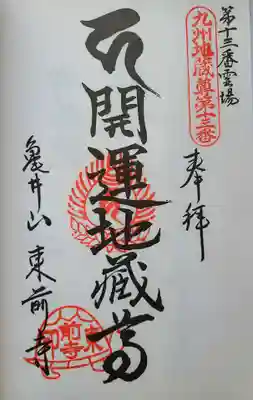 第十三番霊場
九州地蔵尊第十三番
奉拝
開運地蔵尊
亀井山 東前寺
東前寺